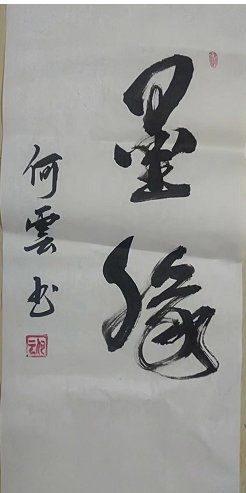 墨缘
何雲书